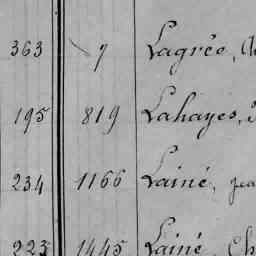 363 7 Lagrée,
195 819 Lahayes,
234 1166 Lainé, Jea
223 1445 Lainé, Ch